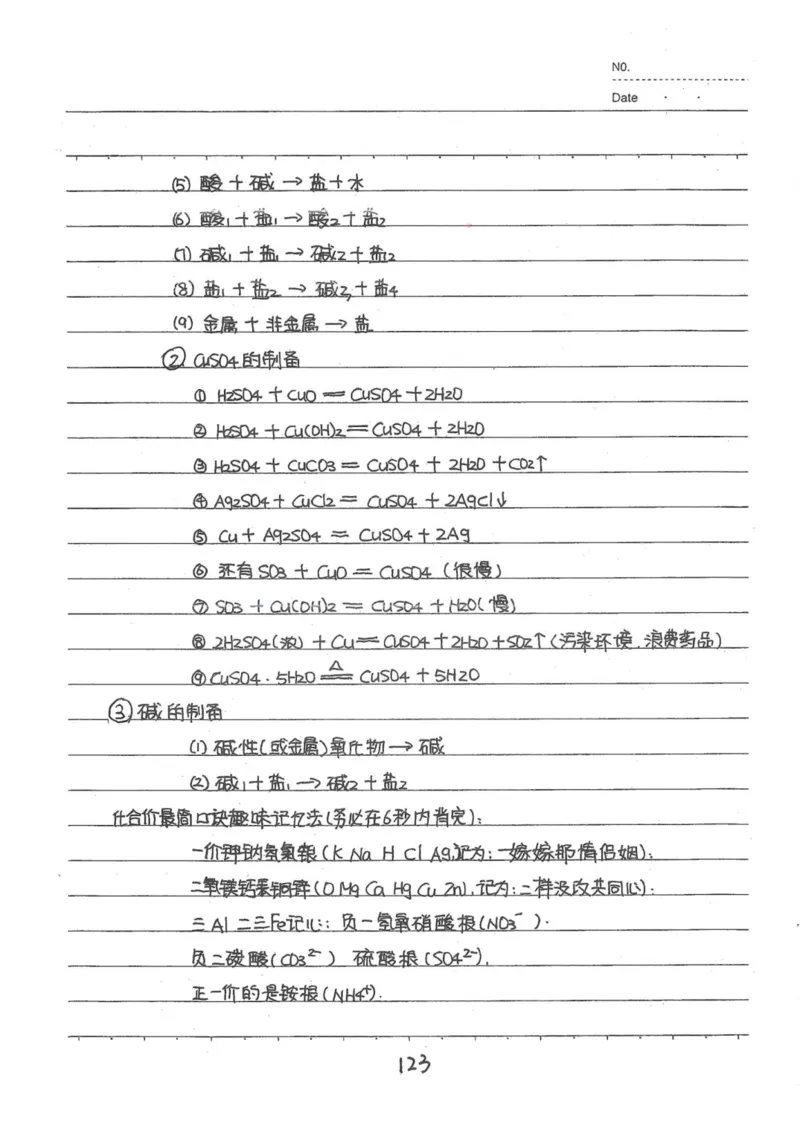 NO.
Date
(5) 酸 + 碱 → 盐 + 水
(6) 酸1 + 盐1 → 酸2 + 盐2
(7) 碱1 + 盐1 → 碱2 + 盐2
(8) 盐1 + 盐2 → 碱3 + 盐4
(9) 金属 + 非金属 → 盐
② CuSO4的制备
① H2SO4 + CuO = CuSO4 + 2H2O
② H2SO4 + Cu(OH)2 = CuSO4 + 2H2O
③ H2SO4 + CuCO3 = CuSO4 + 2H2O + CO2↑
④ Ag2SO4 + CuCl2 = CuSO4 + 2AgCl↓
⑤ Cu + Ag2SO4 = CuSO4 + 2Ag
⑥ 还有SO3 + CuO = CuSO4 (很慢)
⑦ SO3 + Cu(OH)2 = CuSO4 + H2O(慢)
⑧ 2H2SO4(浓) + Cu = CuSO4 + 2H2O + SO2↑(污染环境,浪费药品)
⑨ CuSO4·5H2O ≜ CuSO4 + 5H2O
③ 碱的制备
(1) 碱性(或金属)氧化物 → 碱
(2) 碱1 + 盐1 → 碱2 + 盐2
化合价最简口诀趣味记忆法(务必在6秒内背完):
一价钾钠氢氯银(K Na H Cl Ag),记为:一嫁嫁那情侣姻);
二氧镁钙汞铜锌(O Mg Ca Hg Cu Zn),记为:二样没改共同心);
三Al二三Fe记心;负一氢氧硝酸根(NO3⁻).
负二碳酸(CO3²⁻) 硫酸根(SO4²⁻),
正一价的是铵根(NH4⁺).
123